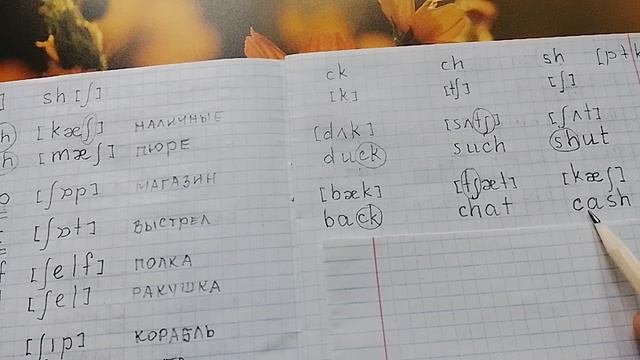 ] sh [ʃ]
h [kæʃ] НАЛИЧНЫЕ
h [mæʃ] ПЮРЕ
[ʃɒp] МАГАЗИН
[ʃɒt] ВЫСТРЕЛ
[ʃelf] ПОЛКА
[ʃel] РАКУШКА
[ʃip] КОРАБЛЬ
ck ch sh
[k] [tʃ] [ʃ]
[dʌk] [sʌtʃ] [ʃʌt]
duck such shut
[bæk] [tʃæt] [kæʃ]
back chat cash